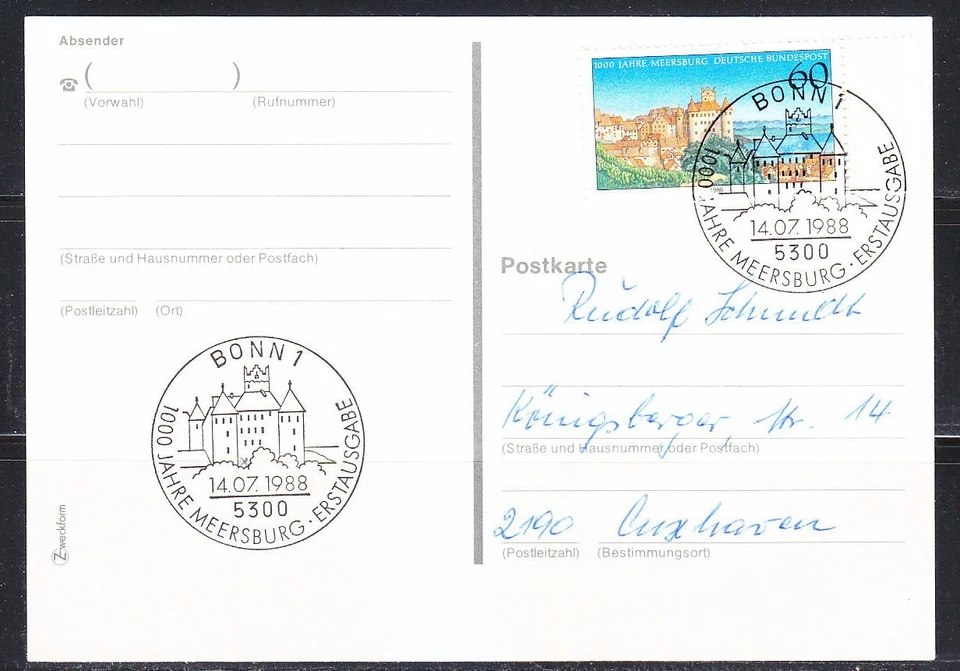 Absender
( )
(Vorwahl) (Rufnummer)
(Straße und Hausnummer oder Postfach)
(Postleitzahl) (Ort)
BONN 1
1000 JAHRE MEERSBURG · ERSTAUSGABE
14.07.1988
5300
Zweckform
1000 JAHRE MEERSBURG DEUTSCHE BUNDESPOST
60
1988
BONN 1
1000 JAHRE MEERSBURG · ERSTAUSGABE
14.07.1988
5300
Postkarte
Rudolf Schmidt
Königsberger Str. 14
(Straße und Hausnummer oder Postfach)
2190 Cuxhaven
(Postleitzahl) (Bestimmungsort)